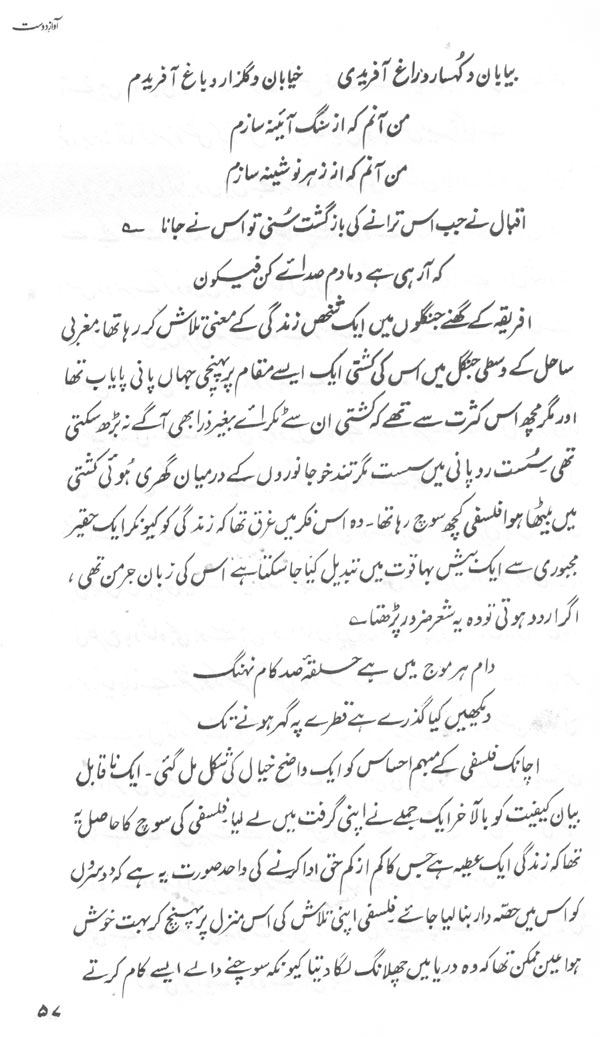 آواز دوست
بیابان و کہسار و راغ آفریدی خیابان و گلزار و باغ آفریدم
من آنم کہ از سنگ آئینہ سازم
من آنم کہ از زہر نوشینہ سازم
اقبال نے جب اس ترانے کی بازگشت سُنی تو اس نے جانا ؎
کہ آ رہی ہے دمادم صدائے کن فیکون
افریقہ کے گھنے جنگلوں میں ایک شخص زندگی کے معنی تلاش کر رہا تھا۔ مغربی
ساحل کے وسطی جنگل میں اس کی کشتی ایک ایسے مقام پر پہنچی جہاں پانی پایاب تھا
اور مگرمچھ اس کثرت سے تھے کہ کشتی ان سے ٹکرائے بغیر ذرا بھی آگے نہ بڑھ سکتی
تھی۔ سُست رو پانی میں سست مگر تند خو جانوروں کے درمیان گھری ہُوئی کشتی
میں بیٹھا ہوا فلسفی کچھ سوچ رہا تھا۔ وہ اس فکر میں غرق تھا کہ زندگی کو کیونکر ایک حقیر
مجبوری سے ایک بیش بہا قوت میں تبدیل کیا جا سکتا ہے اس کی زبان جرمن تھی ،
اگر اردو ہوتی تو وہ یہ شعر ضرور پڑھتا ؎
دام ہر موج میں ہے حلقۂ صد کام نہنگ
دیکھیں کیا گذرے ہے قطرے پہ گہر ہونے تک
اچانک فلسفی کے مبہم احساس کو ایک واضح خیال کی شکل مل گئی۔ ایک ناقابل
بیان کیفیت کو بالآخر ایک جملے نے اپنی گرفت میں لے لیا۔ فلسفی کی سوچ کا حاصل یہ
تھا کہ زندگی ایک عطیہ ہے جس کا کم از کم حق ادا کرنے کی واحد صورت یہ ہے کہ دوسروں
کو اس میں حصّہ دار بنا لیا جائے۔ فلسفی اپنی تلاش کی اس منزل پر پہنچ کر بہت خوش
ہوا عین ممکن تھا کہ وہ دریا میں چھلانگ لگا دیتا کیونکہ سوچنے والے ایسے کام کرتے
۵۷